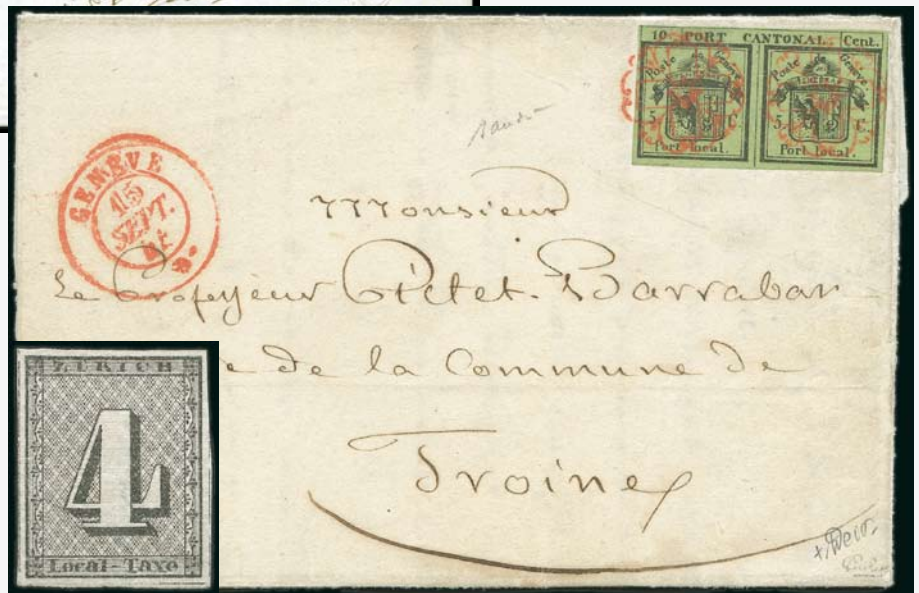 10 PORT CANTONAL Cent.
Poste de Genève Poste de Genève
5 C. 5 C.
Port local. Port local.
GENÈVE
15
SEPT.
Monsieur
Le Professeur Pictet-Barraban
de la Commune de
Troinex
ZÜRICH
4
Local-Taxe